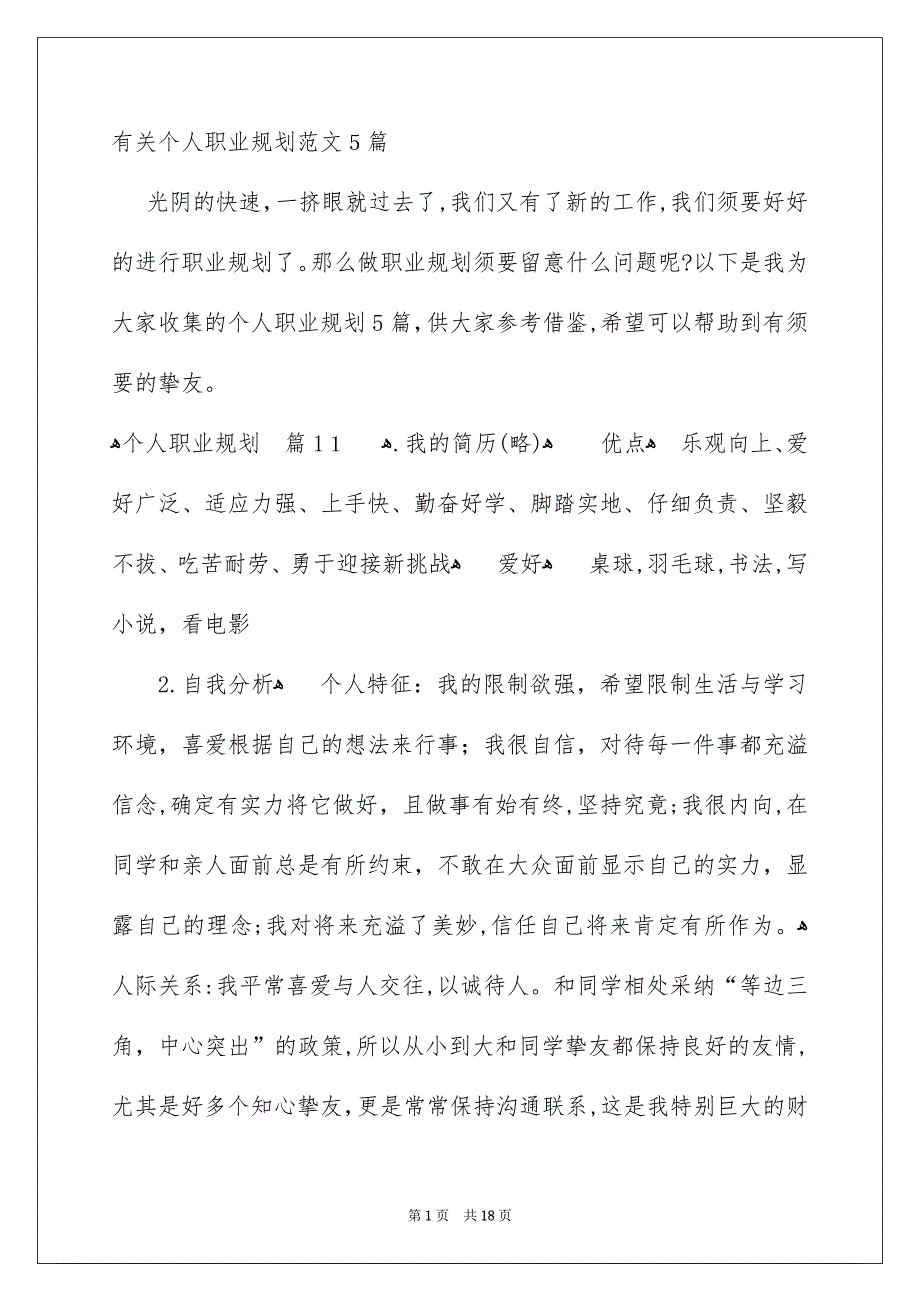 有关个人职业规划范文5篇
光阴的快速，一挤眼就过去了,我们又有了新的工作,我们须要好好
的进行职业规划了。那么做职业规划须要留意什么问题呢?以下是我为
大家收集的个人职业规划5篇，供大家参考借鉴,希望可以帮助到有须
要的挚友。
ﻫ个人职业规划　篇11　ﻫ.我的简历(略)ﻫ　　优点ﻫ　乐观向上、爱
好广泛、适应力强、上手快、勤奋好学、脚踏实地、仔细负责、坚毅
不拔、吃苦耐劳、勇于迎接新挑战ﻫ　　爱好ﻫ　　桌球,羽毛球,书法,写
小说，看电影
2.自我分析ﻫ　个人特征：我的限制欲强，希望限制生活与学习
环境，喜爱根据自己的想法来行事；我很自信，对待每一件事都充溢
信念,确定有实力将它做好，且做事有始有终,坚持究竟;我很内向,在
同学和亲人面前总是有所约束，不敢在大众面前显示自己的实力，显
露自己的理念;我对将来充溢了美妙,信任自己将来肯定有所作为。ﻫ
人际关系:我平常喜爱与人交往,以诚待人。和同学相处采纳“等边三
角，中心突出”的政策,所以从小到大和同学挚友都保持良好的友情,
尤其是好多个知心挚友,更是常常保持沟通联系,这是我特别巨大的财
第1页　共18页